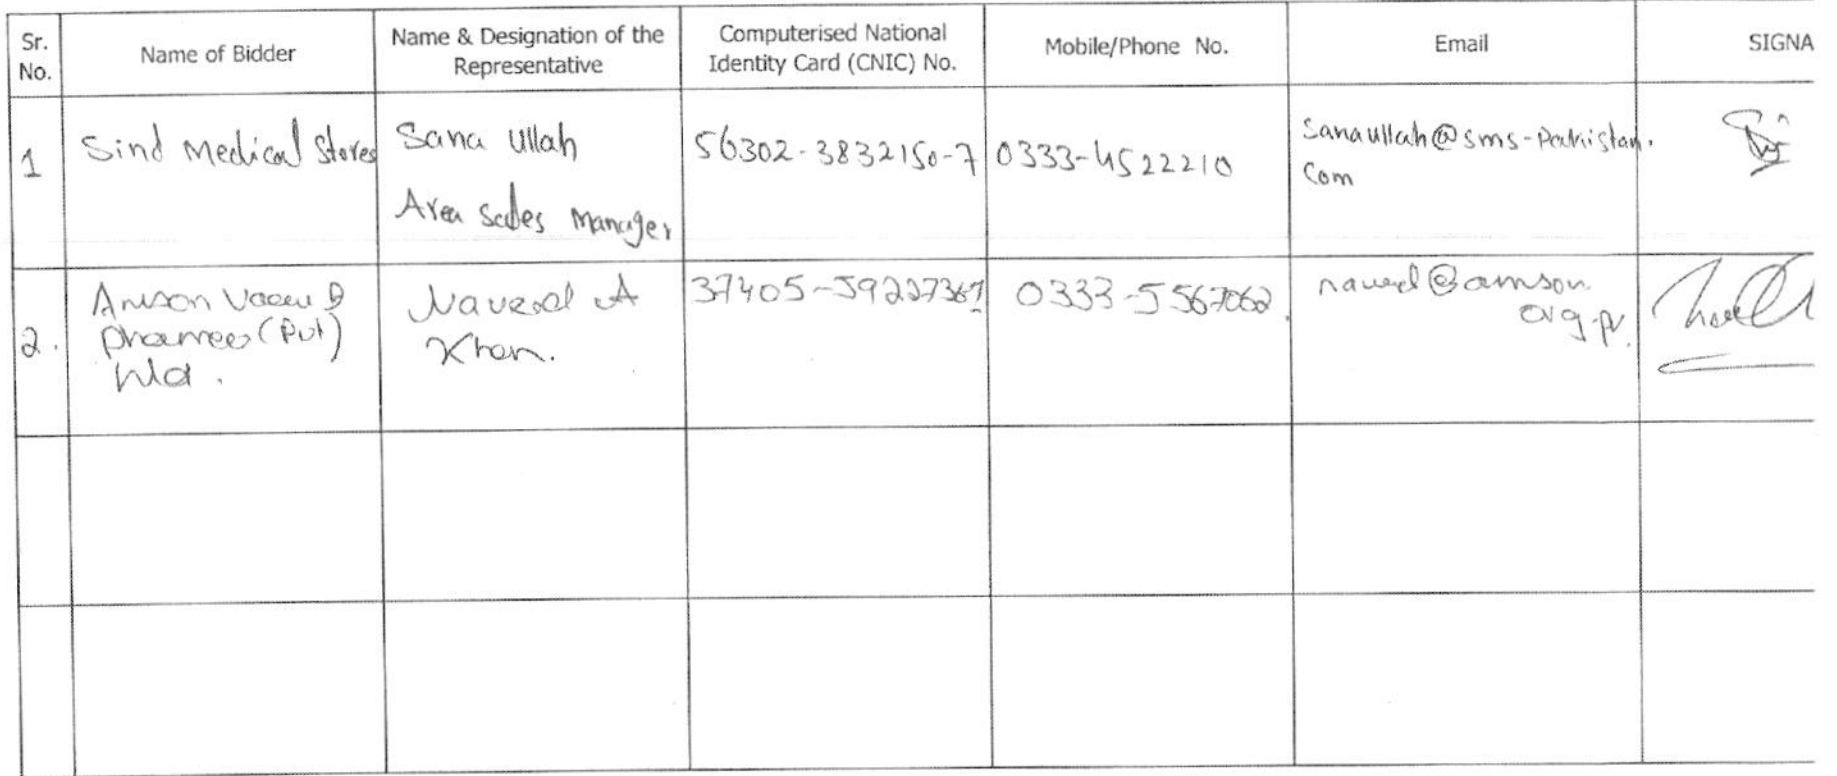 Sr.
No.
Name of Bidder
Name & Designation of the
Representative
Computerised National
Identity Card (CNIC) No.
Mobile/Phone No.
Email
SIGNA
1
Sind Medical Stores
Sana Ullah
Area Sales Manager
56302-3832150-7
0333-4522210
Sanaullah@sms-Pakistan.
Com
2.
Amson Vaccine &
Pharmee (Pvt)
Naveed A
Khan.
37405-5922736
0333-5567062
naveed@amson.
org.pk